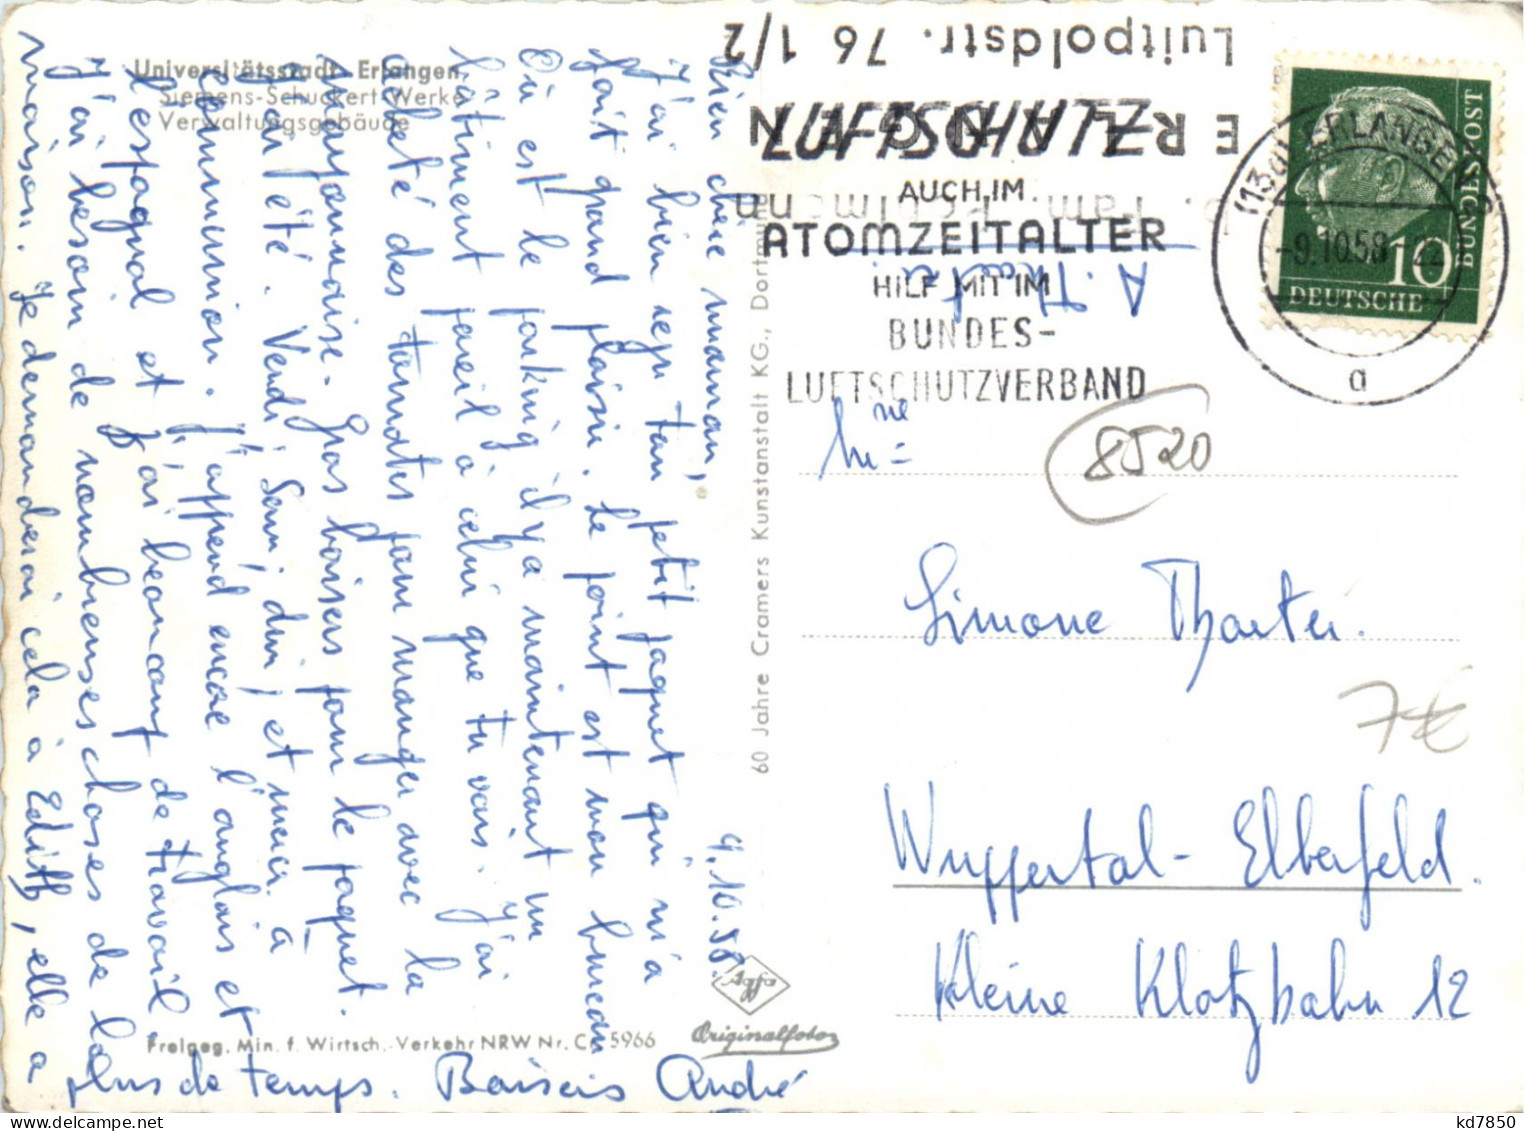 Universitätsstadt Erlangen
Siemens-Schuckert-Werke
Verwaltungsgebäude
9.10.58.
Bien chère maman,
J'ai bien reçu ton petit paquet qui m'a
fait grand plaisir. Le point est mon bureau
Où est le parking il y a maintenant un
bâtiment pareil à celui que tu vois. J'ai
acheté des tomates pour manger avec la
mayonnaise. Gros baisers pour le paquet.
j'ai été. Vendi Sami, dimi, et merci à
communion. J'apprend encore l'anglais et
l'espagnol et j'ai beaucoup de travail.
J'ai besoin de nombreuses choses de la
maison. Je demanderai cela à Edith, elle a
plus de temps. Baisers André
Freigeg. Min. f. Wirtsch. Verkehr NRW Nr. CC 5966
60 Jahre Cramers Kunstanstalt KG., Dortmund
Agfa
Originalfoto
Luitpoldstr. 76 1/2
ERLANGEN
A.
LUFTSCHUTZ
AUCH IM
ATOMZEITALTER
HILF MIT IM
BUNDES-
LUFTSCHUTZVERBAND
(13a) ERLANGEN
-9.10.58
22
a
10
DEUTSCHE
BUNDESPOST
8520
Simone
Wuppertal-Elberfeld.
Kleine Klotzbahn 12
7€
kd7850